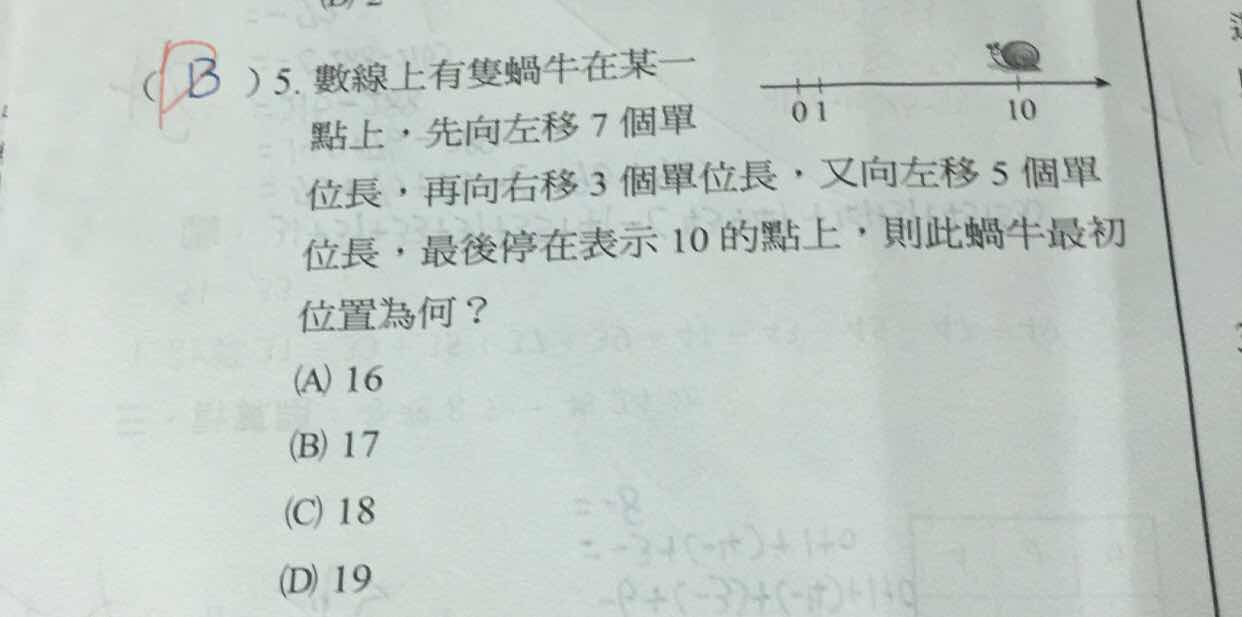 ( B ) 5. 數線上有隻蝸牛在某一
0 1 10
點上，先向左移 7 個單
位長，再向右移 3 個單位長，又向左移 5 個單
位長，最後停在表示 10 的點上，則此蝸牛最初
位置為何？
(A) 16
(B) 17
(C) 18
(D) 19